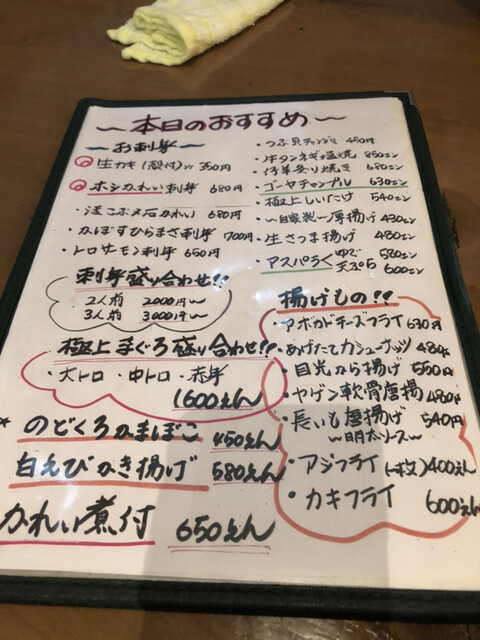 〜本日のおすすめ〜
〜お刺身〜
生カキ(殻付) 350円
ホシカれい刺身 680円
・活〆 石かれい 680円
・かぼすひらまさ刺身 700円
・トロサーモン刺身 650円
刺身盛り合わせ!!
・2人前 2000円〜
3人前 3000円〜
極上まぐろ盛り合わせ!!
・大トロ ・中トロ ・赤身
1600えん
*のどくろかまぼこ 450えん
白えびかき揚げ 580えん
かれい煮付 650えん
・つぶ貝キムチ 450円
・牛タンネギ塩焼 850エン
・仔羊炙り焼き 680エン
・ゴーヤチャンプル 630エン
・極上しいたけ 540エン
・〜自家製〜厚揚げ 430エン
・生さつま揚げ 480エン
・アスパラ ゆで 580エン
天ぷら 600エン
揚げもの!!
・アボカドチーズフライ 630円
・あげたてカシューナッツ 480円
・目光から揚げ 550円
・ヤゲン軟骨唐揚 480円
・長いも唐揚げ 540円
〜明太ソース〜
・アジフライ(一枚) 400えん
・カキフライ 600えん